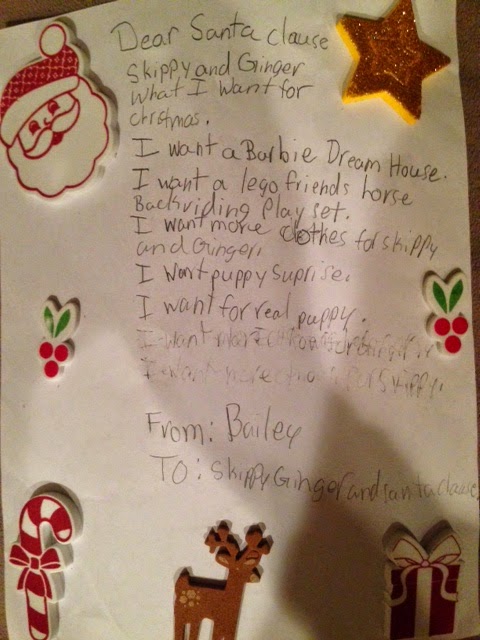 Dear Santa clause
Skippy and Ginger
What I Want for
christmas.
I want a Barbie Dream House.
I want a lego friends horse
Backriding Play set.
I want more clothes for skippy
and Ginger.
I Want puppy suprise.
I want for real puppy.
I want more clothes for
I want more clothes for Skippy.
From: Bailey
To: Skippy Ginger and santa clause.